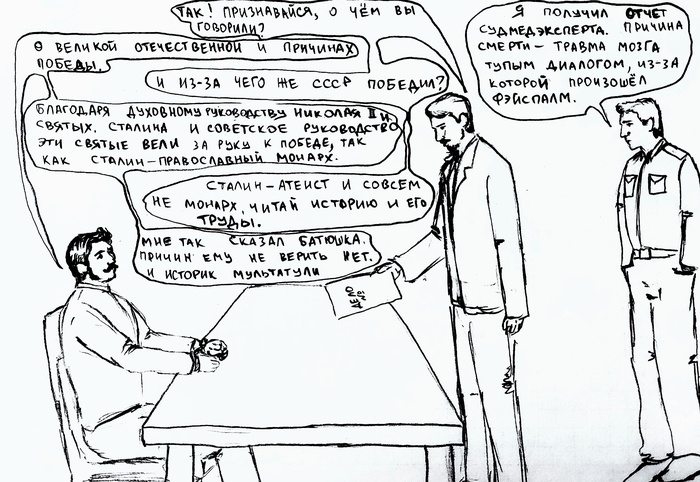 ТАК! ПРИЗНАВАЙСЯ, О ЧЁМ ВЫ
ГОВОРИЛИ?
О ВЕЛИКОЙ ОТЕЧЕСТВЕННОЙ И ПРИЧИНАХ
ПОБЕДЫ.
И ИЗ-ЗА ЧЕГО ЖЕ СССР ПОБЕДИЛ?
БЛАГОДАРЯ ДУХОВНОМУ РУКОВОДСТВУ НИКОЛАЯ II И
СВЯТЫХ. СТАЛИНА И СОВЕТСКОЕ РУКОВОДСТВО
ЭТИ СВЯТЫЕ ВЕЛИ ЗА РУКУ К ПОБЕДЕ, ТАК
КАК СТАЛИН-ПРАВОСЛАВНЫЙ МОНАРХ.
СТАЛИН-АТЕИСТ И СОВСЕМ
НЕ МОНАРХ, ЧИТАЙ ИСТОРИЮ И ЕГО
ТРУДЫ.
МНЕ ТАК СКАЗАЛ БАТЮШКА.
ПРИЧИН ЕМУ НЕ ВЕРИТЬ НЕТ.
И ИСТОРИК МУЛЬТАТУЛИ
ДЕЛО
№
Я ПОЛУЧИЛ ОТЧЕТ
СУДМЕДЭКСПЕРТА. ПРИЧИНА
СМЕРТИ- ТРАВМА МОЗГА
ТУПЫМ ДИАЛОГОМ, ИЗ-ЗА
КОТОРОЙ ПРОИЗОШЁЛ
ФЭЙСПАЛМ.